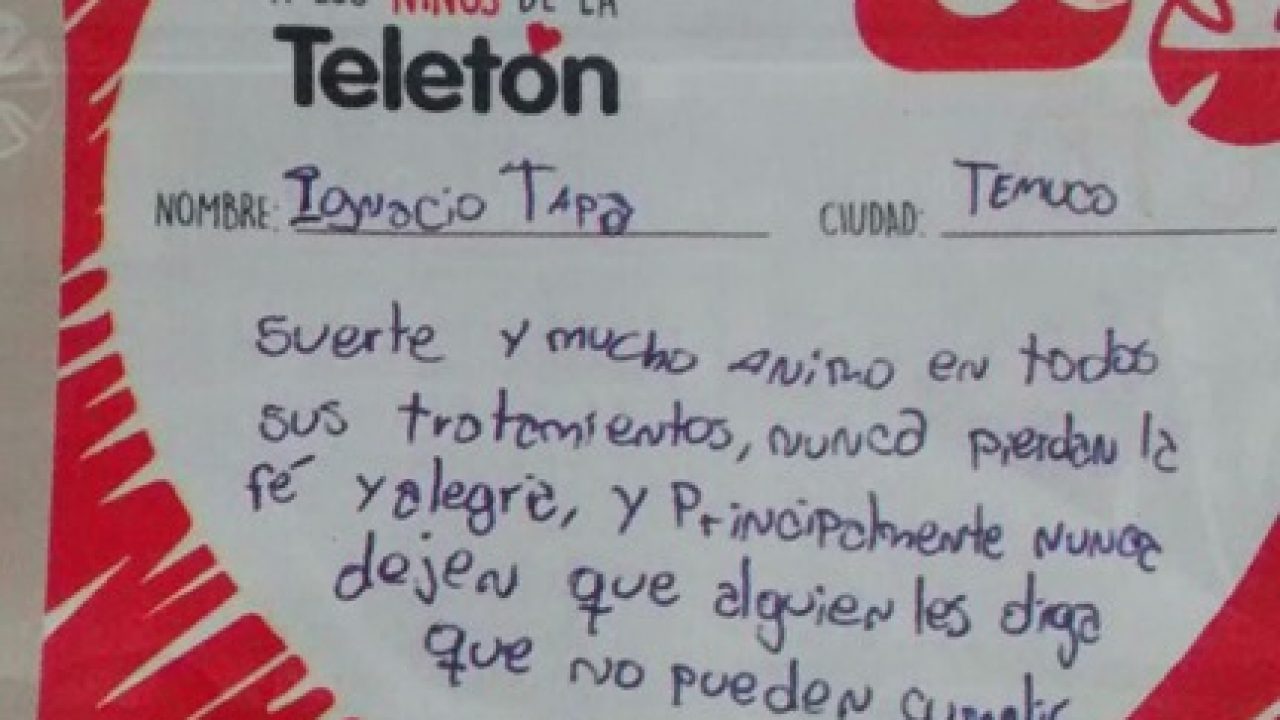 A LOS NIÑOS DE LA
Teletón
NOMBRE: Ignacio Tapa CIUDAD: Temuco
suerte y mucho animo en todos
sus tratamientos, nunca pierdan la
fé y alegria, y Principalmente nunca
dejen que alguien les diga
que no pueden cumplir